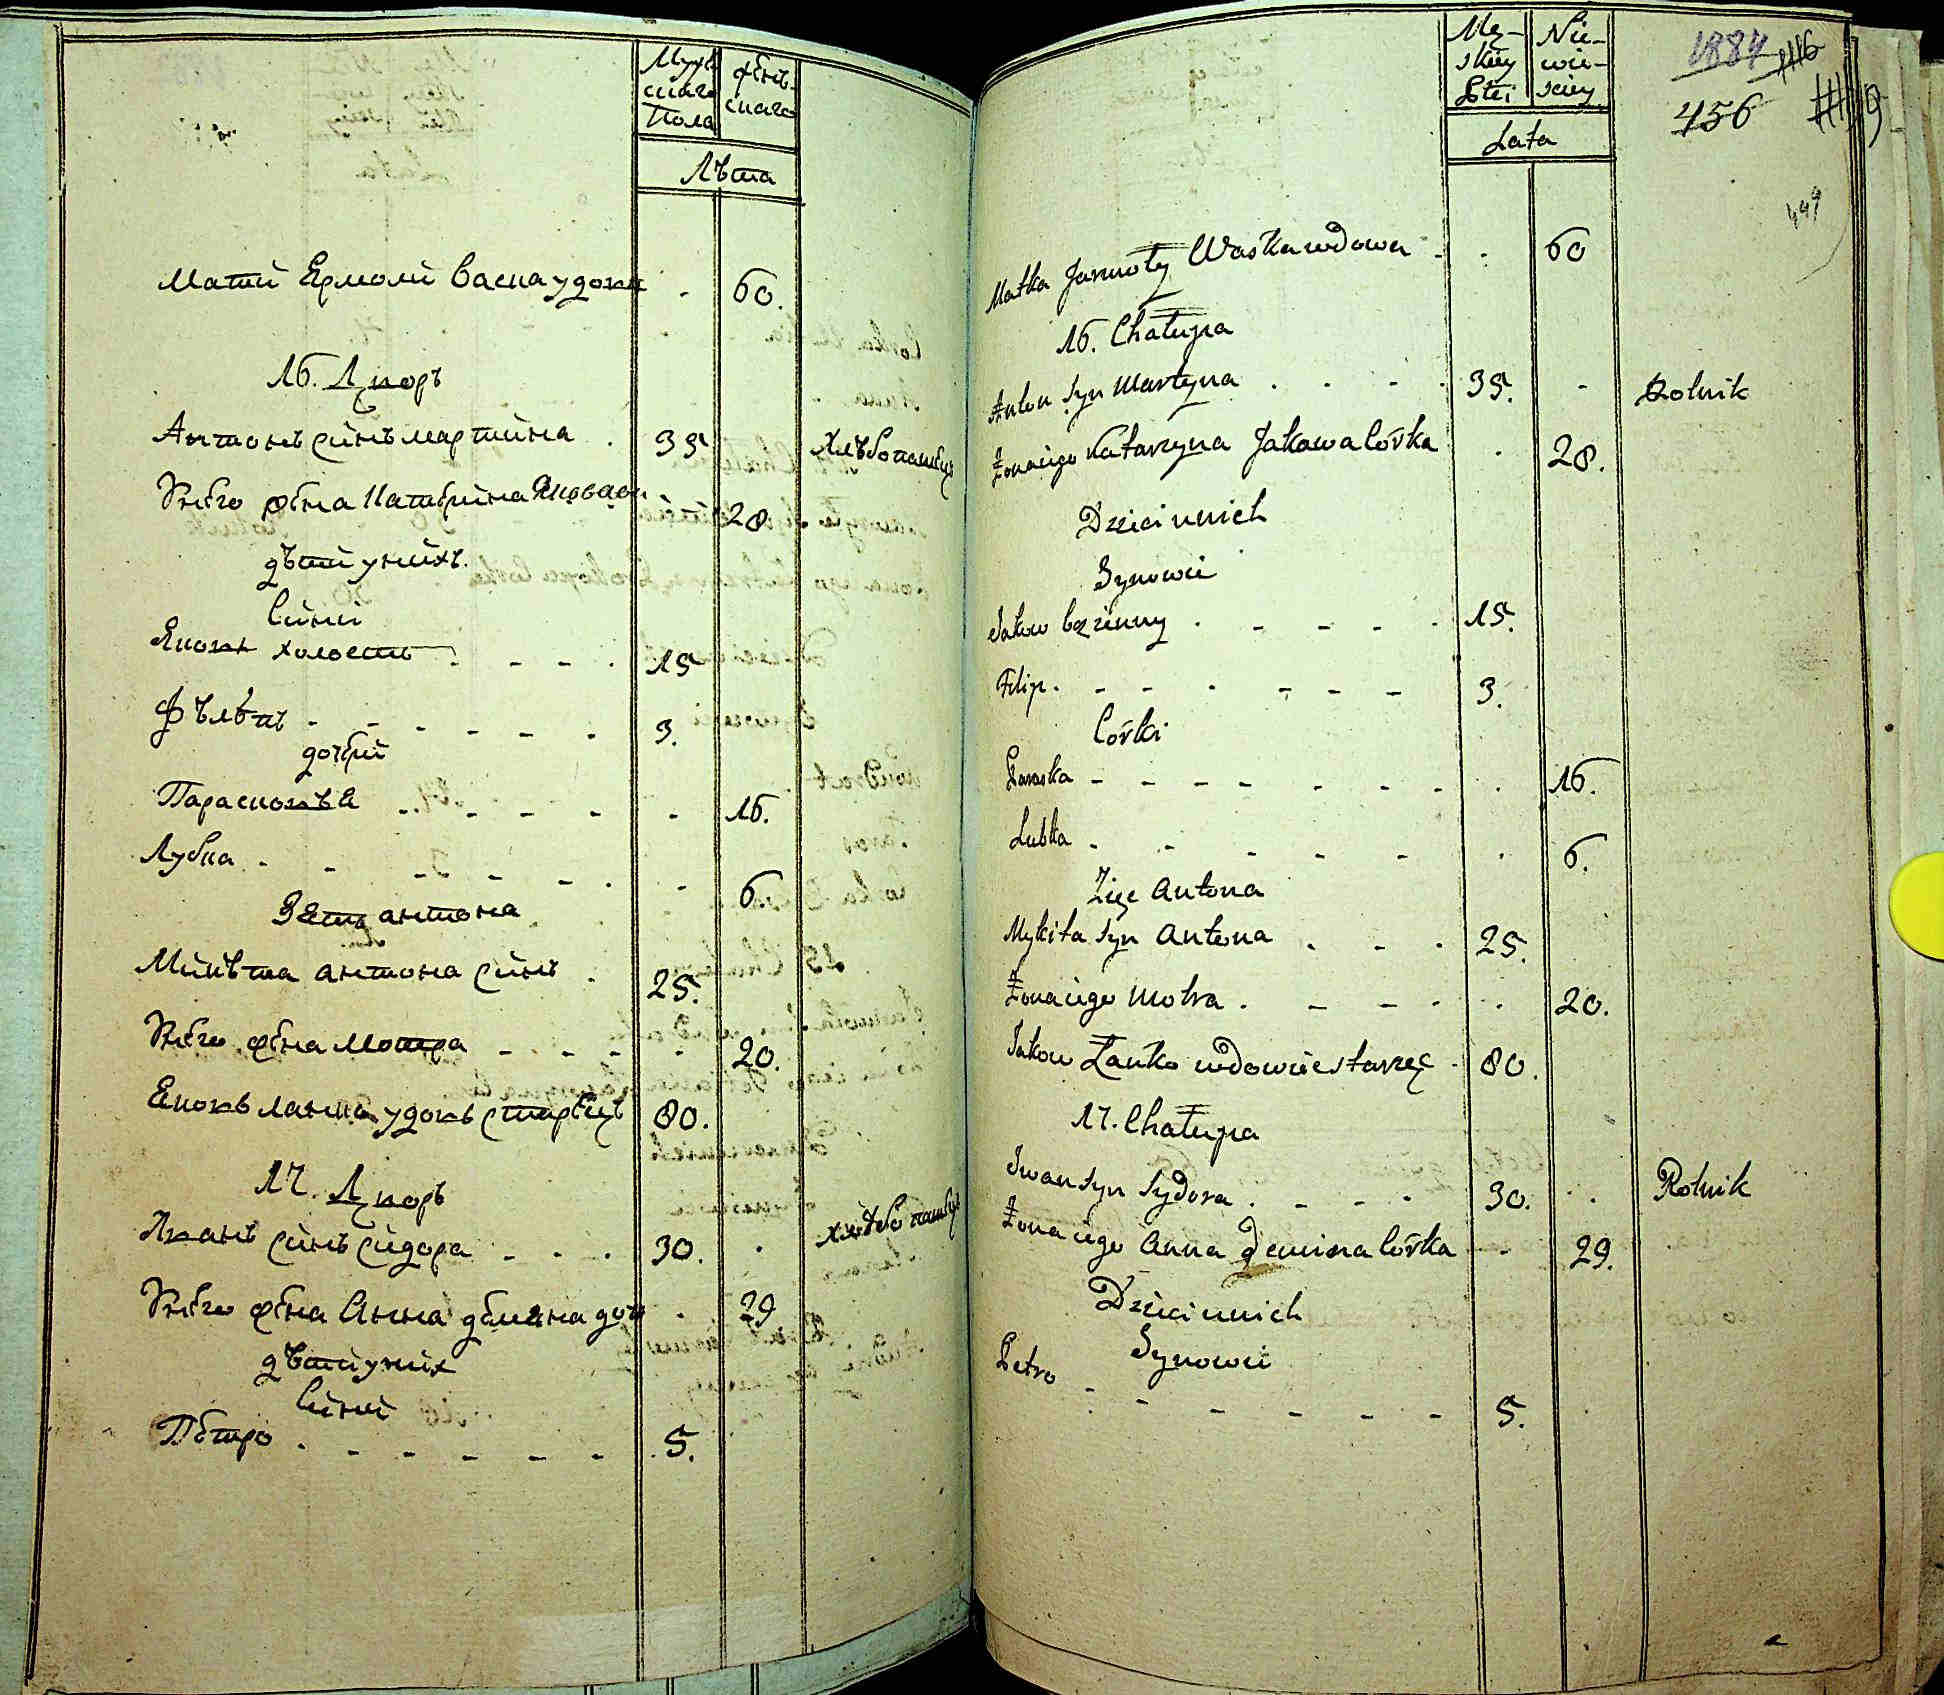 Мужскаго Пола
женскаго
Лѣта
Матка Ермоли Васка удова . 60.
16. Дворъ
Антонъ синъ мартина . 35 хлѣбопашецъ
У него жена Катерина Яковова 28
дѣти унихъ.
Сини
Яковъ холостъ . - - - . 15
Филипъ - - - - - . 3.
дочери
Парасковѣя - - - - - - 16.
Лубка . - - - - . - 6.
Зять антона
Микита антона синъ . 25.
У него жена Мотра - - - - 20.
Яковъ ланка удовъ старецъ 80.
17. Дворъ
Иванъ синъ сидора - - . 30. . хлѣбопашецъ
У него жена Анна демяна доч . 29
дѣти уних
Сини
Петро . - - - - - 5.
Męskiey Płci
Niewieściey
Lata
1884
456
449
Matka Jarmoły Waska wdowa - . 60
16. Chałupa
Anton syn Martyna . . - . 35. - Rolnik
Żona iego Katarzyna Jakowa Córka . 28.
Dzieci unich
Synowie
Jakow bezżenny . - - - . 15.
Filip . - - . - - - 3.
Córki
Paraska - - - - - - - . 16.
Lubka - - - - - . 6.
Zięć Antona
Mykita syn Antona . - . 25.
Żona iego Motra . - - - . 20.
Jakow Łanko wdowiec starzec . 80.
17. Chałupa
Iwan syn Sydora . - - . 30. . Rolnik
Żona iego Anna Demiana Córka - . 29.
Dzieci unich
Synowie
Petro - - - - - - 5.